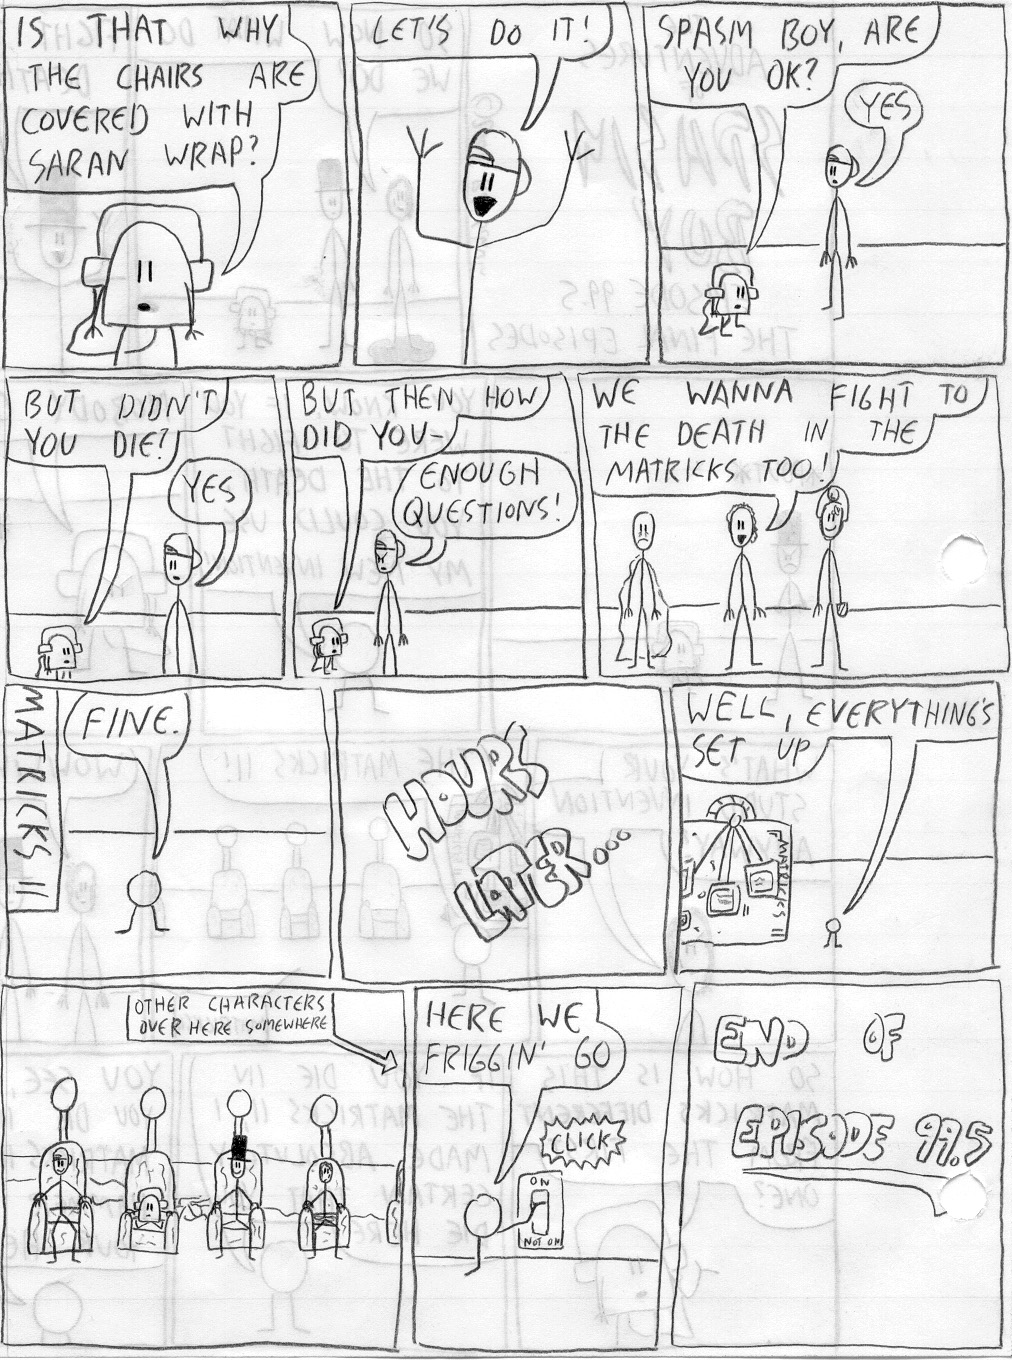 IS THAT WHY
THE CHAIRS ARE
COVERED WITH
SARAN WRAP?
LET'S DO IT!
SPASM BOY, ARE
YOU OK?
YES
BUT DIDN'T
YOU DIE?
YES
BUT THEN HOW
DID YOU-
ENOUGH
QUESTIONS!
WE WANNA FIGHT TO
THE DEATH IN THE
MATRICKS TOO!
MATRICKS II
FINE.
HOURS
LATER...
WELL, EVERYTHING'S
SET UP
MATRICKS II
OTHER CHARACTERS
OVER HERE SOMEWHERE
HERE WE
FRIGGIN' GO
CLICK
ON
NOT ON
END OF
EPISODE 99.5